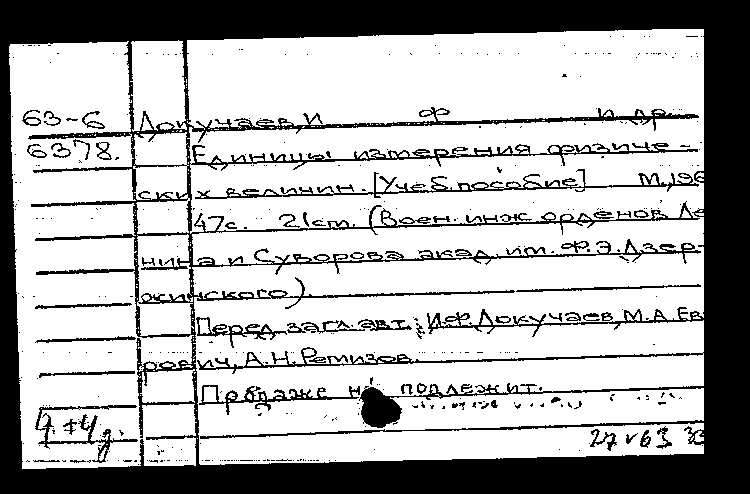 63-6 Докучаев, И Ф и др.
6378. Единицы измерения физиче-
ских величин. [Учеб. пособие] М., 196
47с. 21см. (Воен. инж. орденов Ле
нина и Суворова акад. им. Ф.Э. Дзер-
жинского).
Перед загл. авт.: И.Ф. Докучаев, М.А. Ев
рович, А.Н. Ремизов.
Продаже не подлежит.
27 V 63